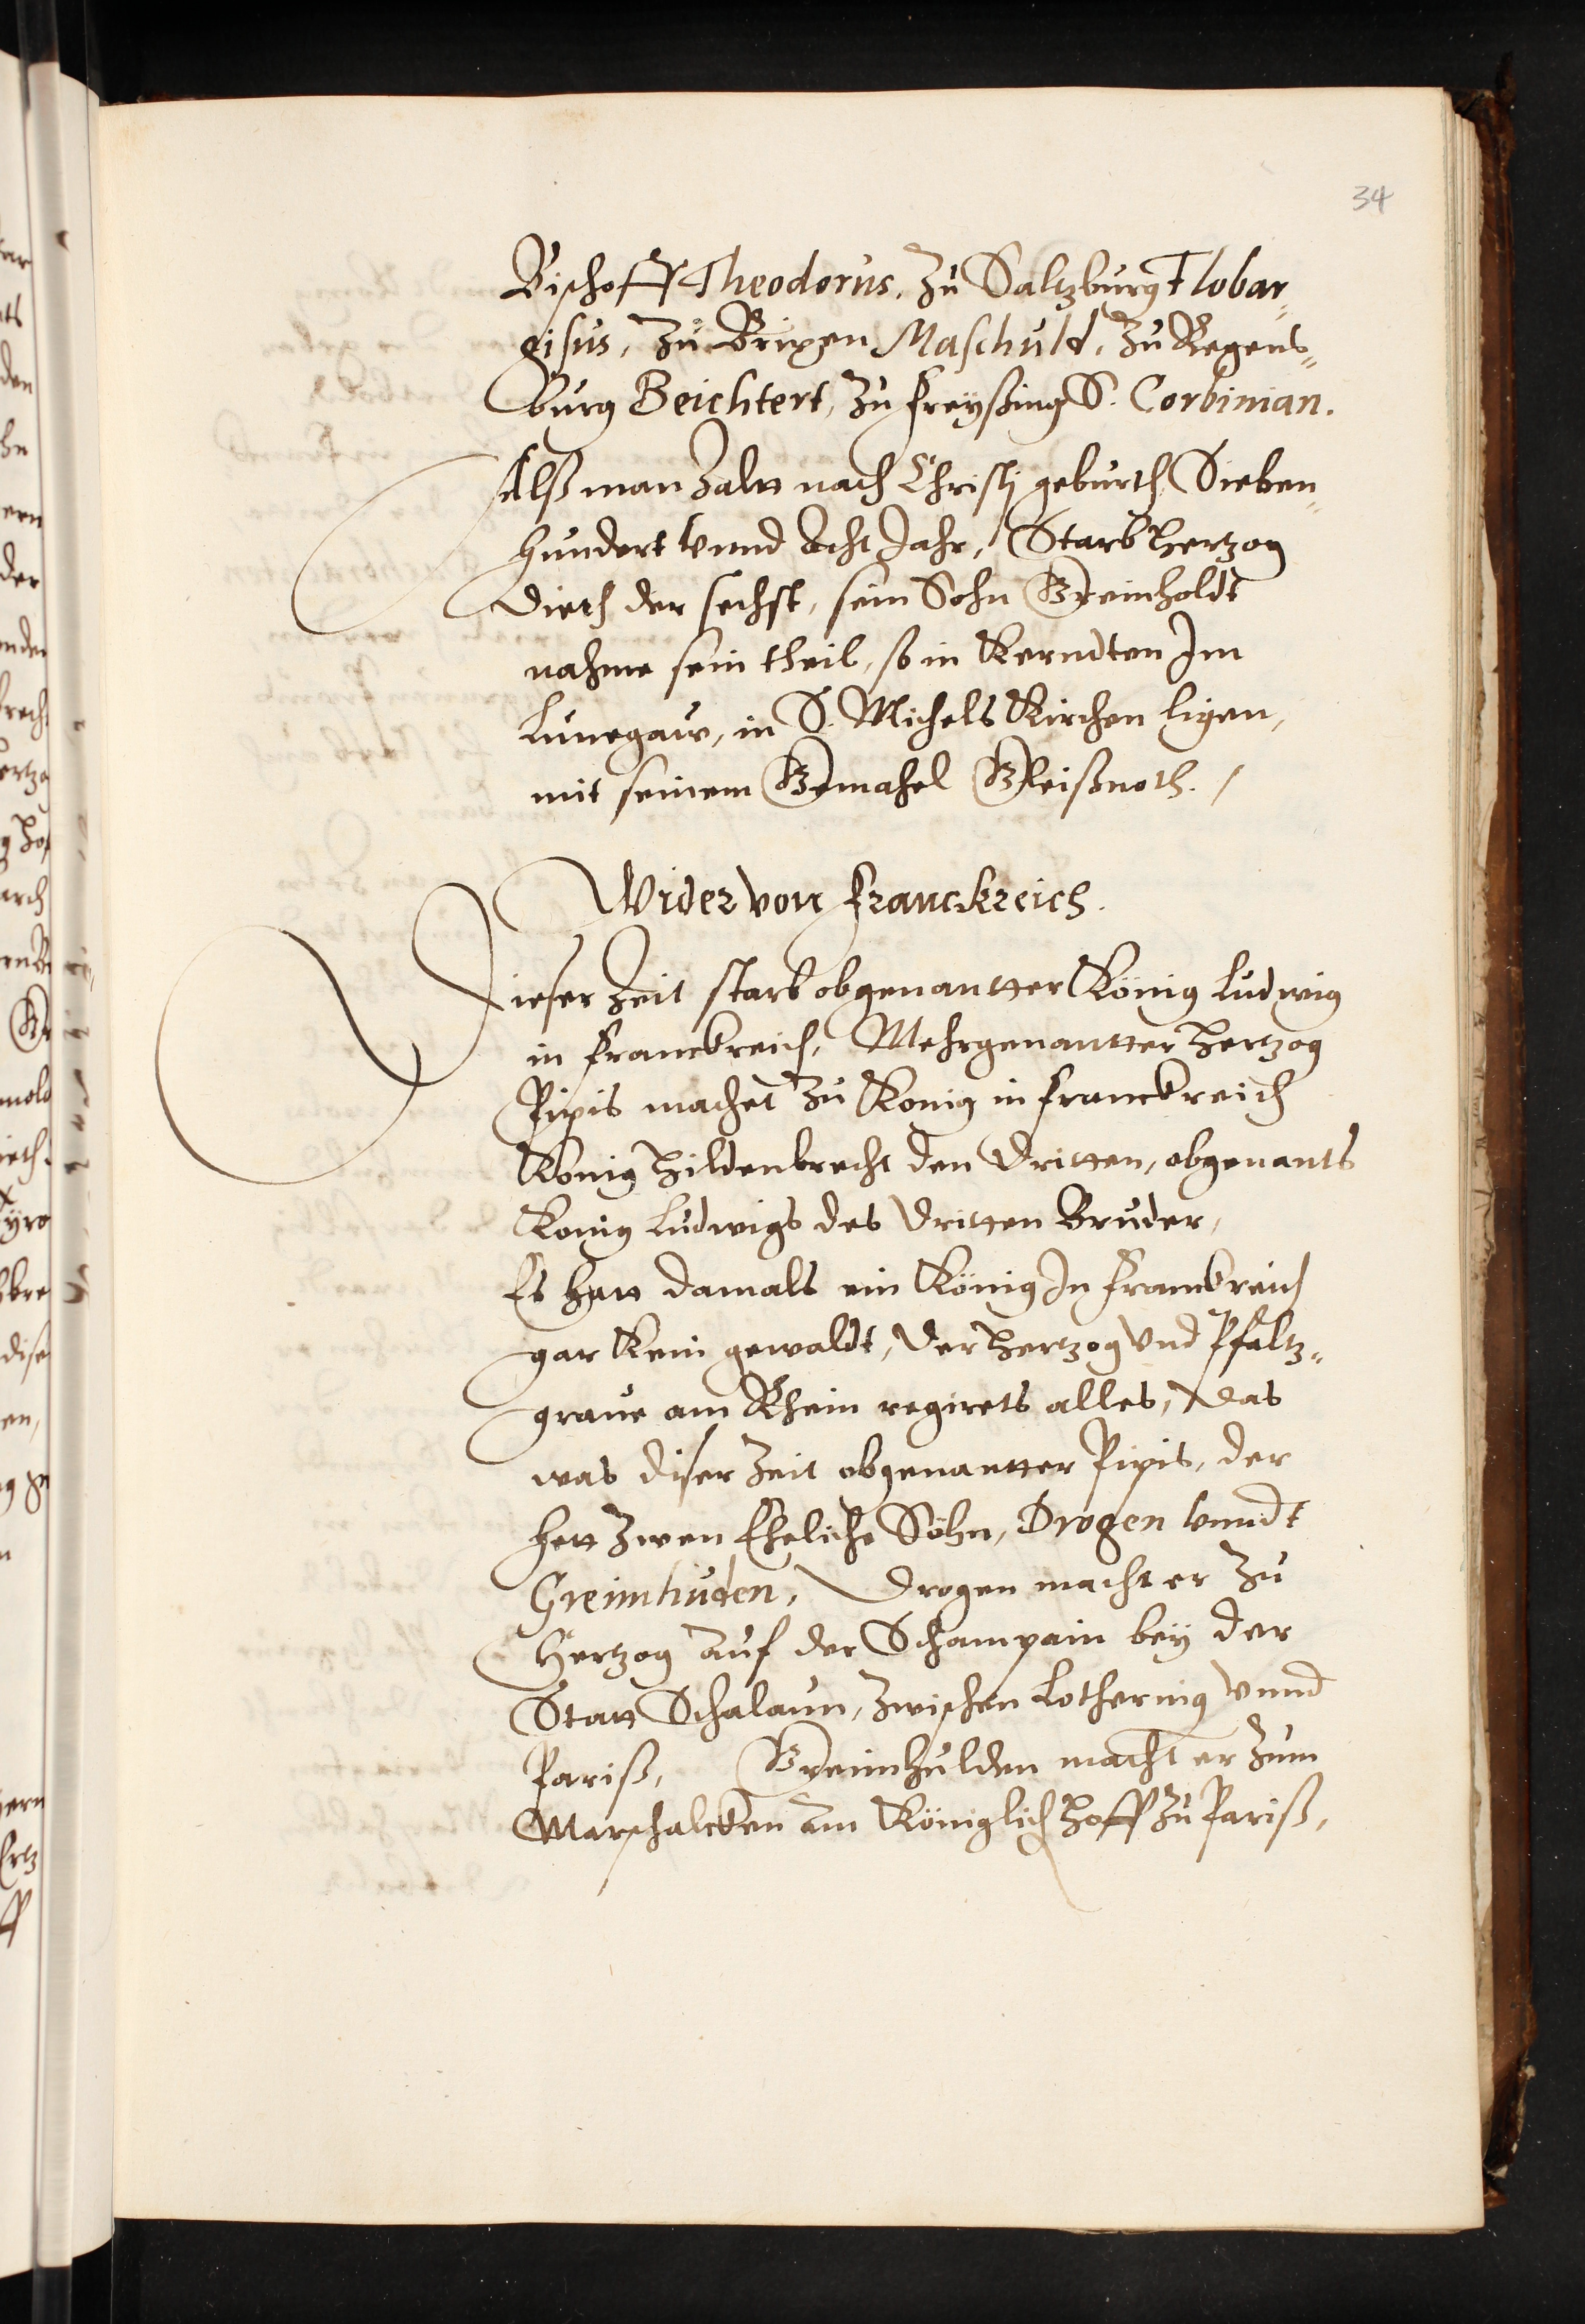 34
Bischoff Theodorus. Zu Saltzburg Flobar„
gisus, zu Brixen Maschuld, zu Regens„
burg Beichtert, zu Freyßing S. Corbinian.
Alß man zaltt nach Christj geburth Sieben„
hundert vnnd Acht Jahr, Starb Hertzog
Dieth der sechst, sein Sohn Greinholdt
nahme sein theil, so in Kerndten Im
Lunegaw, in S. Michels Kirchen ligen,
mit seinem Gemahel Gleißnoth. /
Wider von Franckreich.
Dieser Zeit starb obgenantter König Ludwig
in Franckreich, Mehrgenantter Hertzog
Pipis machet zu Konig in Franckreich
König Hildenbrecht den Dritten, obgenants
König Ludwigs des Dritten Bruder,
Es hatt damals ein König In Franckreich
gar kein gewaldt, Der Hertzog vnd Pfaltz„
graue am Rhein regirets alles, Das
was diser Zeit obgenantter Pipis, der
hett zwen Eheliche Söhn, Drogen vnndt
Greimhuden, Drogen macht er zu
Hertzog auf der Schampain bey der
Statt Schalaun, zwischen Lothering vnnd
Pariß, Greimhulden macht er zum
Marschalcken am Königlich Hoff zu Pariß,